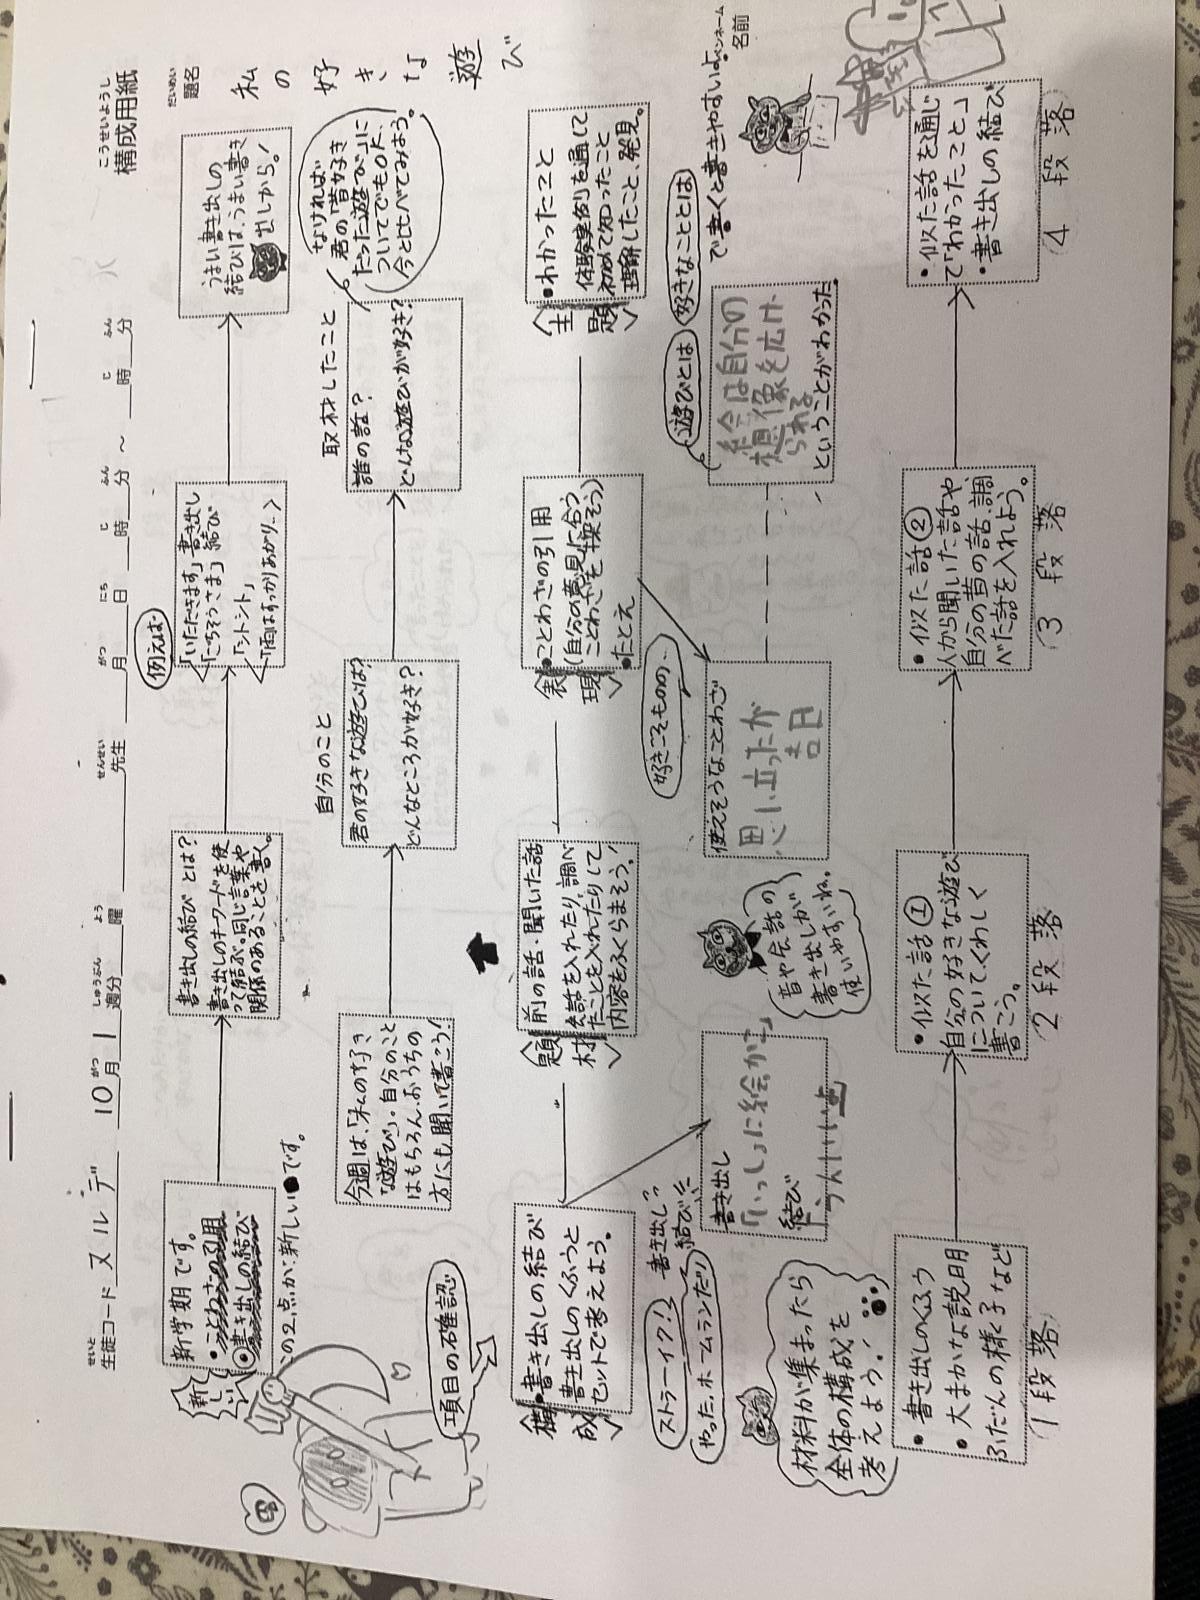 構成用紙
こうせいようし
生徒コード ヌルデ 10月 1週分 曜 先生 月 日 時 分 ～ 時 分
せいと がつ しゅうぶん よう せんせい がつ にち じ ふん じ ふん
題名
だいめい
私の好きな遊び
名前
ペンネーム
新しい
新学期です。
・ことわざの引用
◎書き出しの結び
この2点が新しい●です。
書き出しの結びとは？
書き出しのキーワードを使
って結ぶ。同じ言葉や
関係のあることを書く。
例えば…
「いただきます」書き出し
「ごちそうさま」結び
「シトシト」
「雨はすっかりあがり…」
うまい書き出しの
結びは、うまい書き
出しから！
項目の確認
今週は、「私の好き
な遊び」。自分のこと
はもちろん、おうちの
方にも聞いて書こう！
自分のこと
君の好きな遊びは？
どんなところが好き？
取材したこと
誰の話？
どんな遊びが好き？
なければ、
君の「昔好き
だった遊び」に
ついてでもOK、
今と比べてみよう。
構成
・書き出しの結び
書き出しのくふうと
セットで考えよう。
題材
前の話・聞いた話
会話を入れたり、調べ
たことを入れたりして
内容をふくらまそう！
表現
・ことわざの引用
(自分の意見に合う
ことわざを探そう)
・たとえ
主題
・わかったこと
体験実例を通して
初めて知ったこと
理解したこと、発見。
ストライーク！！
書き出し
やった、ホームランだ！！
結び
書き出し
結び
音や会話の
書き出しが
使いやすいね。
好きこそものの…
使えそうなことわざ
思い立ったが
吉日
遊びとは
好きなこととは
で書くと書きやすいよ。
絵は自分の
想像を広げ
られる
ということがわかった
材料が集まったら
全体の構成を
考えよう！
・書き出しのくふう
・大まかな説明
ふだんの様子など
1段落
・似た話①
自分の好きな遊び
についてくわしく
書こう。
2段落
・似た話②
人から聞いた話や、
自分の昔の話、調
べた話を入れよう。
3段落
・似た話を通じ
て「わかったこと」
・書き出しの結び
4段落